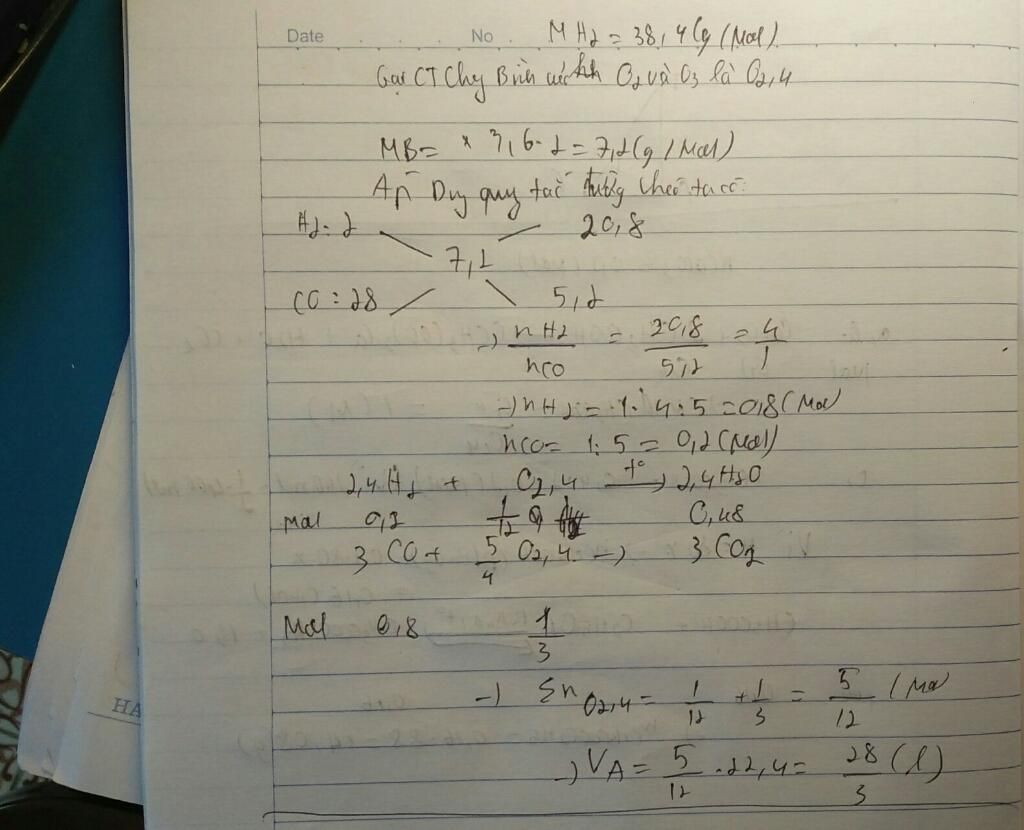 Date No. MH2 = 38,4 (g/Mol)
Gọi CT Chg O2 và O3 là O2,4
MB = 3,6.2 = 7,2 (g/Mol)
Áp Dụg quy tắc đường chéo ta có:
H2: 2 20,8
7,2
CO: 28 5,2
→ nH2/nCO = 20,8/5,2 = 4/1
→ nH2 = 1.4:5 = 0,8 (Mol)
nCO = 1:5 = 0,2 (Mol)
2,4 H2 + O2,4 t° → 2,4 H2O
Mol 0,2 1/12 0,48
3 CO + 5/4 O2,4 → 3 CO2
Mol 0,8 1/3
→ Σn O2,4 = 1/12 + 1/3 = 5/12 (Mol
→ VA = 5/12 . 22,4 = 28/3 (l)
HA